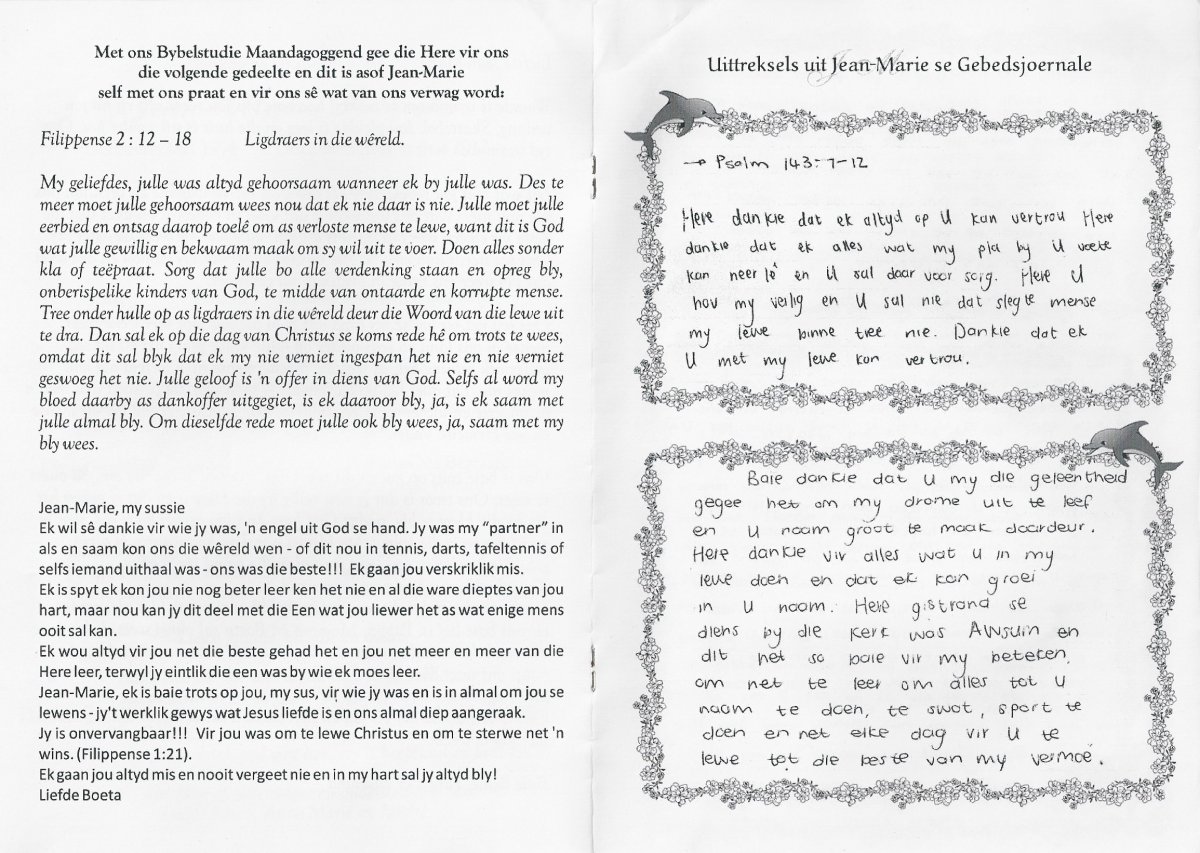 Met ons Bybelstudie Maandagoggend gee die Here vir ons
die volgende gedeelte en dit is asof Jean-Marie
self met ons praat en vir ons sê wat van ons verwag word:
Filippense 2 : 12 – 18 Ligdraers in die wêreld.
My geliefdes, julle was altyd gehoorsaam wanneer ek by julle was. Des te
meer moet julle gehoorsaam wees nou dat ek nie daar is nie. Julle moet julle
eerbied en ontsag daarop toelê om as verloste mense te lewe, want dit is God
wat julle gewillig en bekwaam maak om sy wil uit te voer. Doen alles sonder
kla of teëpraat. Sorg dat julle bo alle verdenking staan en opreg bly,
onberispelike kinders van God, te midde van ontaarde en korrupte mense.
Tree onder hulle op as ligdraers in die wêreld deur die Woord van die lewe uit
te dra. Dan sal ek op die dag van Christus se koms rede hê om trots te wees,
omdat dit sal blyk dat ek my nie verniet ingespan het nie en nie verniet
geswoeg het nie. Julle geloof is 'n offer in diens van God. Selfs al word my
bloed daarby as dankoffer uitgegiet, is ek daaroor bly, ja, is ek saam met
julle almal bly. Om dieselfde rede moet julle ook bly wees, ja, saam met my
bly wees.
Jean-Marie, my sussie
Ek wil sê dankie vir wie jy was, 'n engel uit God se hand. Jy was my “partner” in
als en saam kon ons die wêreld wen - of dit nou in tennis, darts, tafeltennis of
selfs iemand uithaal was - ons was die beste!!! Ek gaan jou verskriklik mis.
Ek is spyt ek kon jou nie nog beter leer ken het nie en al die ware dieptes van jou
hart, maar nou kan jy dit deel met die Een wat jou liewer het as wat enige mens
ooit sal kan.
Ek wou altyd vir jou net die beste gehad het en jou net meer en meer van die
Here leer, terwyl jy eintlik die een was by wie ek moes leer.
Jean-Marie, ek is baie trots op jou, my sus, vir wie jy was en is in almal om jou se
lewens - jy't werklik gewys wat Jesus liefde is en ons almal diep aangeraak.
Jy is onvervangbaar!!! Vir jou was om te lewe Christus en om te sterwe net 'n
wins. (Filippense 1:21).
Ek gaan jou altyd mis en nooit vergeet nie en in my hart sal jy altyd bly!
Liefde Boeta
Uittreksels uit Jean-Marie se Gebedsjoernale
→ Psalm 143:7-12
Here dankie dat ek altyd op U kan vertrou Here
dankie dat ek alles wat my pla by U voete
kan neer lê en U sal daar voor sorg. Here U
hou my veilig en U sal nie dat slegte mense
my lewe binne tree nie. Dankie dat ek
U met my lewe kan vertrou.
Baie dankie dat U my die geleentheid
gegee het om my drome uit te leef
en U naam groot te maak daardeur.
Here dankie vir alles wat U in my
lewe doen en dat ek kan groei
in U naam. Here gistrand se
diens by die kerk was AWSUM en
dit het so baie vir my beteken,
om net te leer om alles tot U
naam te doen, te swot, sport te
doen en net elke dag vir U te
lewe tot die beste van my vermoë.